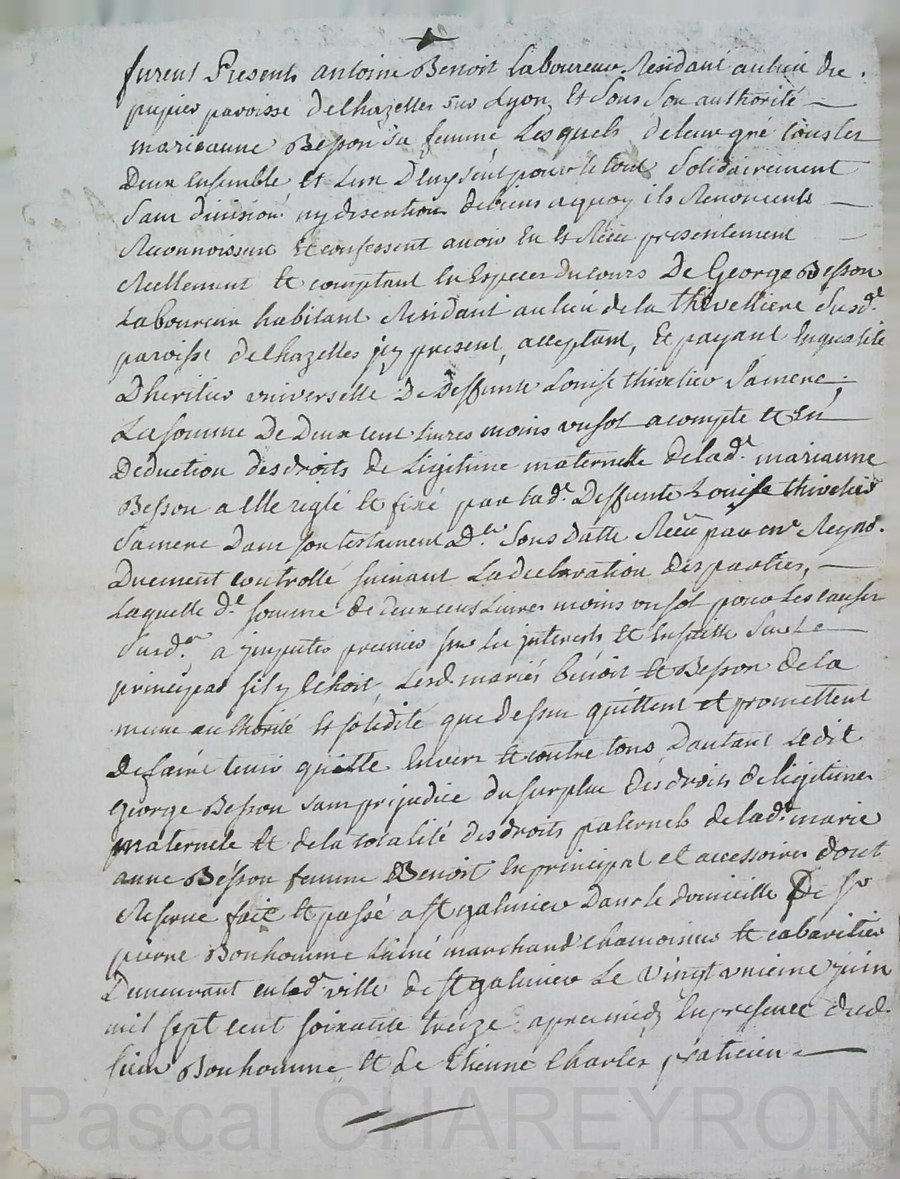 furent Presents antoine Benoit Laboureur Residant au lieu de
pupier paroisse de Chazelles sur Lyon, et sous son authorité
marieanne Besson sa femme, Lesquels de leur gré tous les
Deux Ensemble et Lun D'Eux seul pour le tout solidairement
sans division ny discution de biens a quoy ils Renoncents
Reconnoissent et confessent avoir Eu et Receu presentement
Reellement et comptant En Especes du cours De George Besson
Laboureur habitant Residant au lieu de la thivelliere susd.e
paroisse de Chazelles jcy present, acceptant, Et payant En qualité
D'heritier universelle De Deffunte Louise thivelier sa mere;
La somme De Deux cent Livres moins un sol a compte et En
Deduction des droits de Legitime maternelle de lad.e marianne
Besson a Elle reglé et fixé par lad.e Deffunte Louise thivelier
sa mere Dans son testament D.. sous datte Receu par m.e Reyno.
Duement controllé suivant La declaration des parties,
Laquelle d.e somme de deux cens Livres moins un sol pour Les causes
susd.es a jmputer premier sur les jnterests et Ensuitte sur Le
principal sil y Echoit, Lesd. mariés Benoit et Besson de la
meme authorité et solidité que dessus quittent et promettent
de faire tenir quitte Envers et contre tous D'autant Ledit
George Besson sans prejudice du surplus des droits de legitime
maternele et de la totalité des droits paternels de lad.e marie
anne Besson femme Benoit En principal et accessoires dont
Reserve fait et passé a S.t galmier Dans le domicille De S.r
pierre Bonhomme Lainé marchand Chamoiseur et cabaretier
Demeurant en lad.e ville de S.t galmier Le vingt unieme juin
mil sept cent soixante treize apres midy En presence dud.
sieur Bonhomme et de Etienne Charles praticien
Pascal CHAREYRON